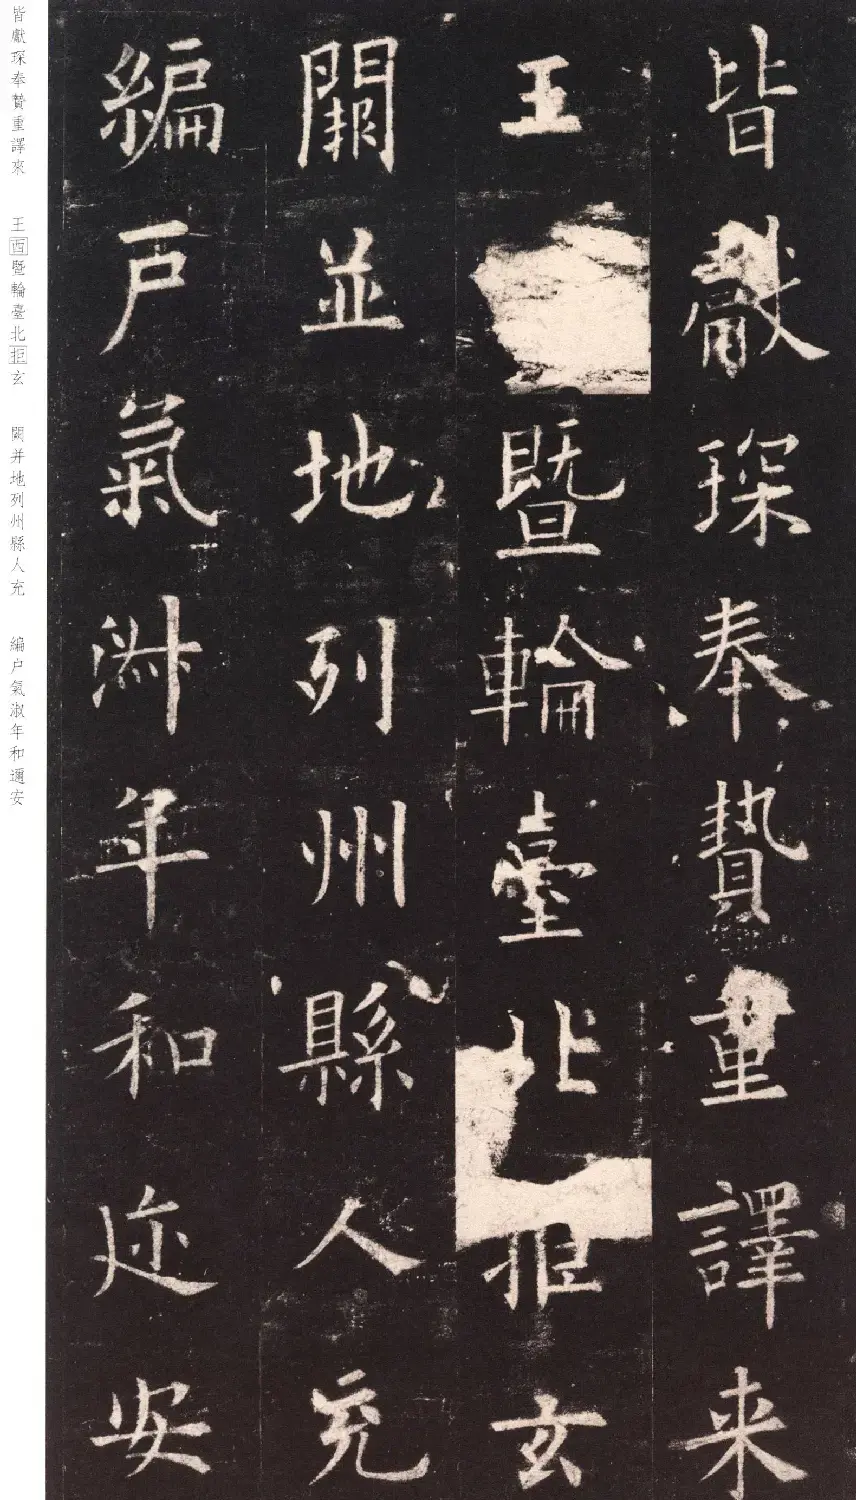 皆獻琛奉贄重譯来
王暨輪臺北拒玄
闕並地列州縣人充
編戸氣淑年和迩安
皆獻琛奉贄重譯來
王西暨輪臺北拒玄
闕并地列州縣人充
編户氣淑年和邇安